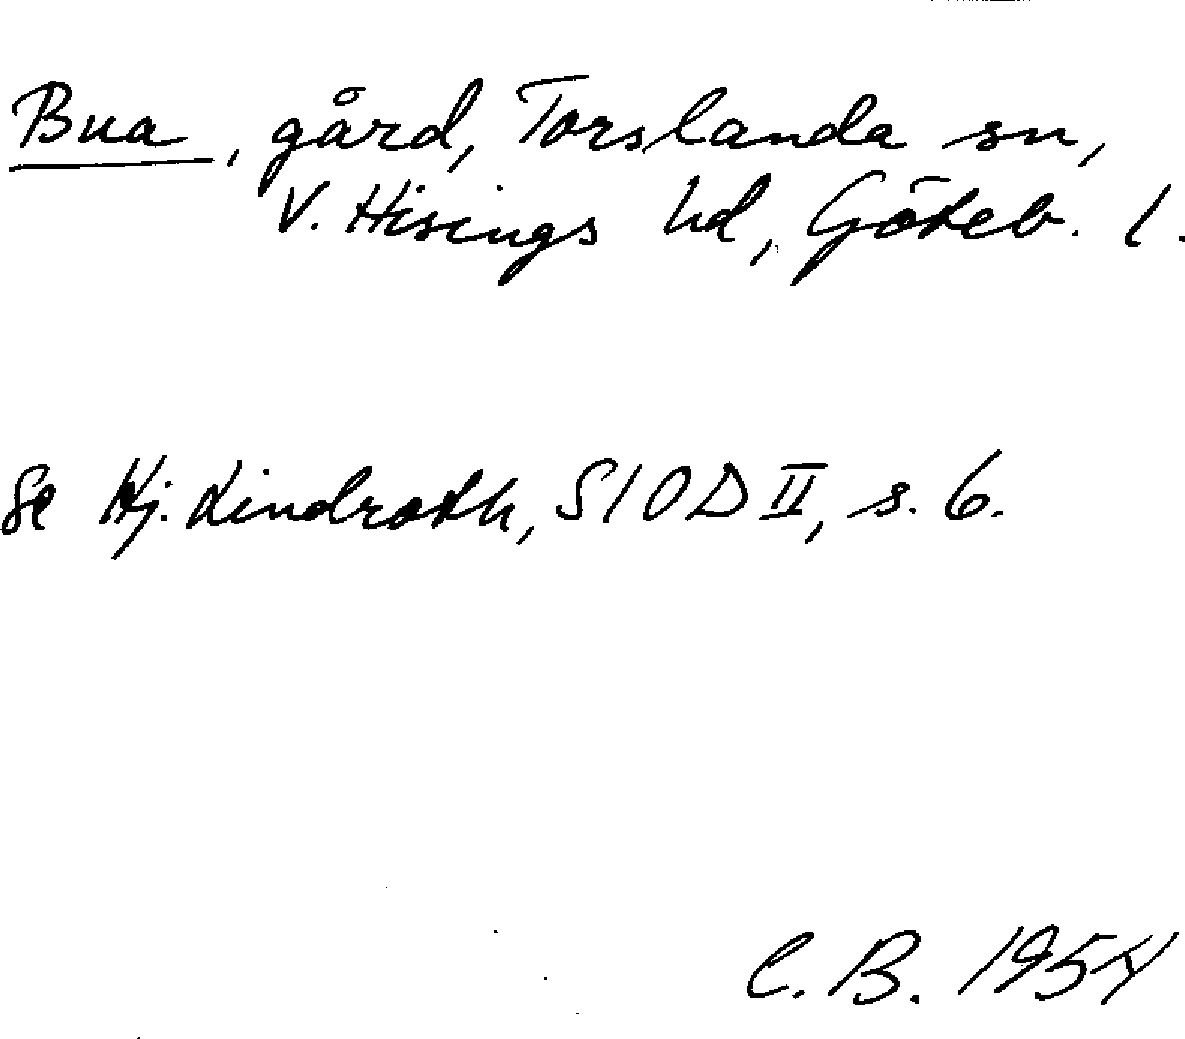 Bua, gård, Torslanda sn,
V. Hisings hd, Göteb. l.
Se Hj. Lindroth, SIOD II, s. 6.
C. B. 1954